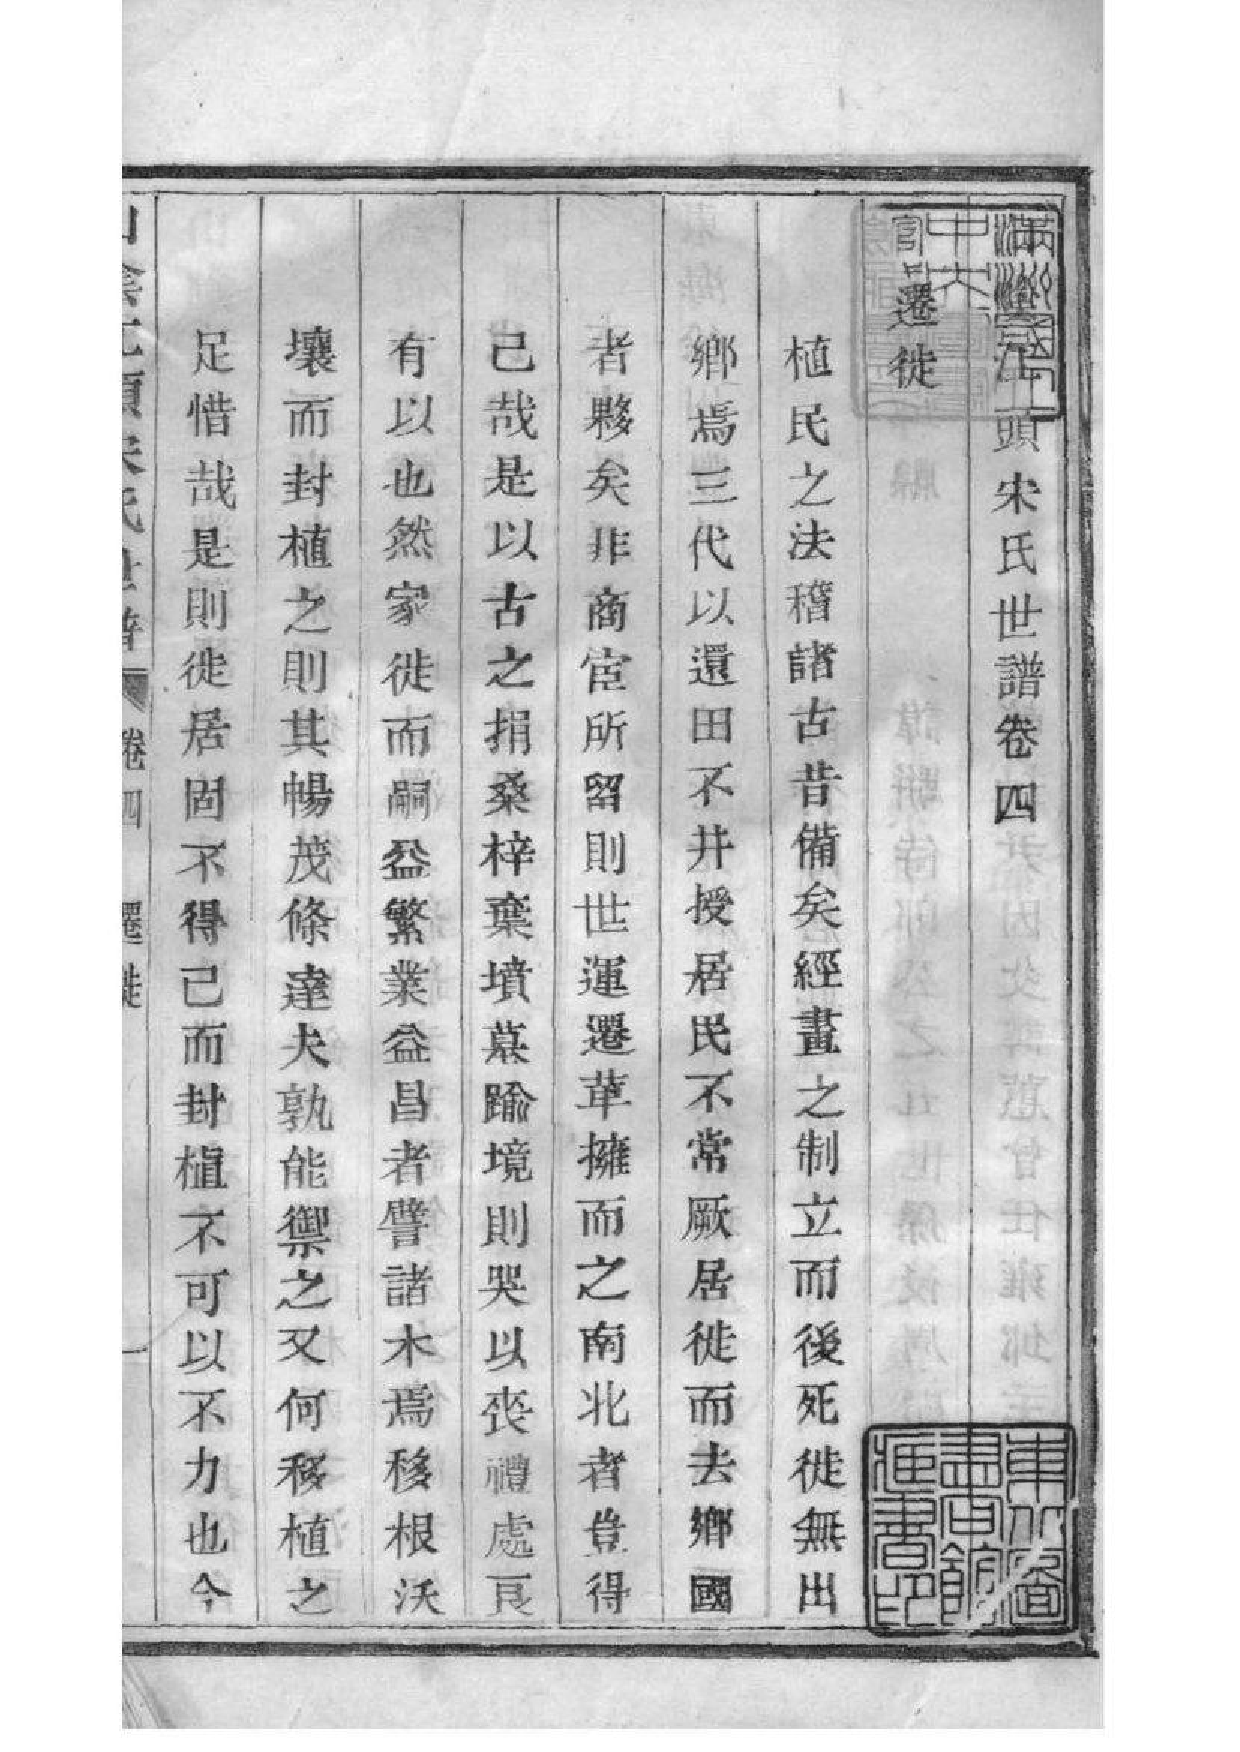 江頭宋氏世譜卷四
遷徙
植民之法稽諸古昔備矣經畫之制立而後死徙無出
鄉焉三代以還田不井授居民不常厥居徙而去鄉國
者夥矣非商宦所留則世運遷革擁而之南北者豈得
已哉是以古之捐桑梓棄墳墓踰境則哭以喪禮處良
有以也然家徙而嗣益繁業益昌者譬諸木焉移根沃
壤而封植之則其暢茂條達夫孰能禦之又何移植之
足惜哉是則徙居固不得已而封植不可以不力也今
山陰江頭宋氏世譜 卷四 遷徙 一